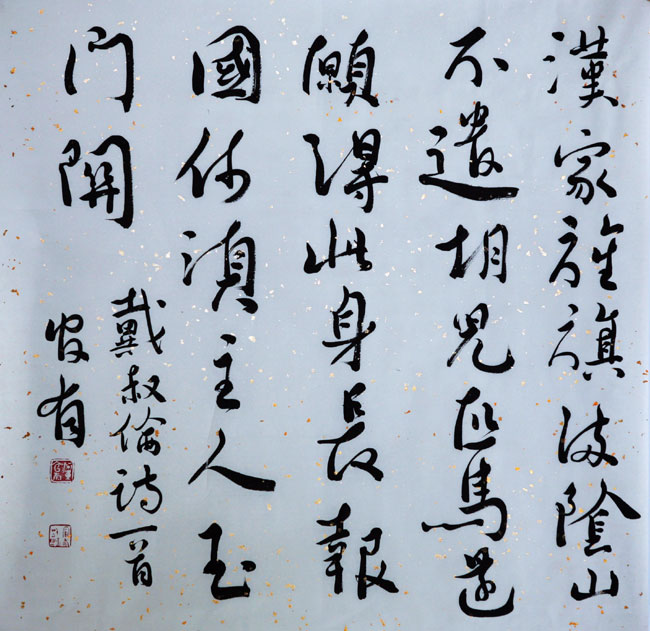 漢家旌旗滿陰山
不遣胡兒匹馬還
願得此身長報
國何湏主人玉
門關
戴叔倫詩一首
有